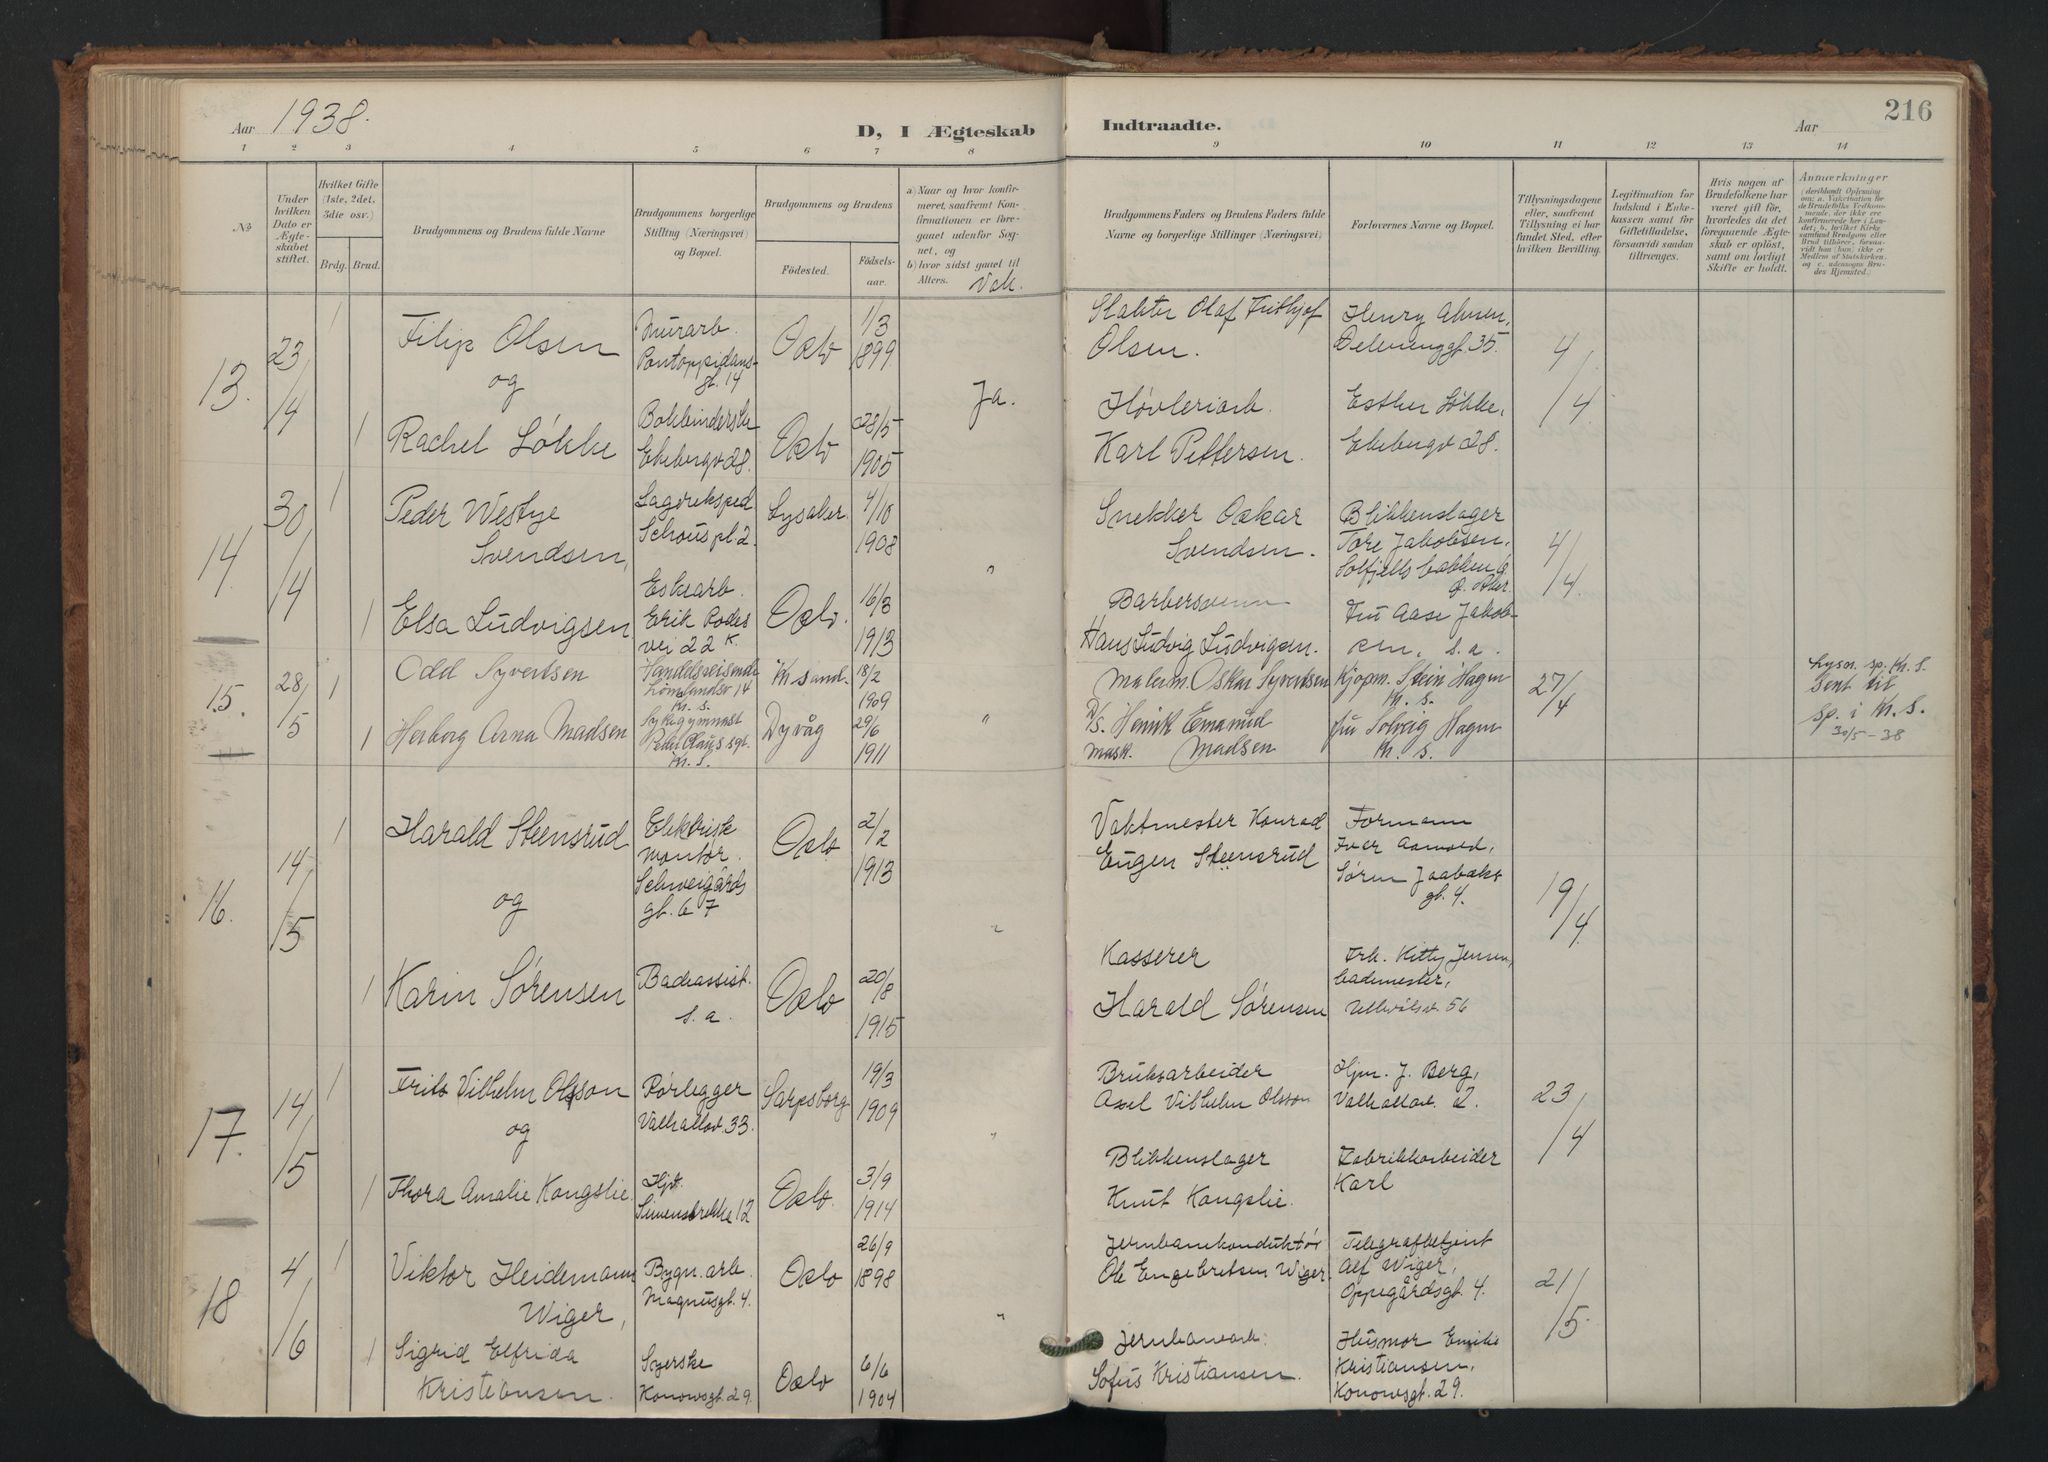 216
Aar 1938.
D, I Ægteskab
Indtraadte.
Aar
1 2 3 4 5 6 7 8 9 10 11 12 13 14
No
Under hvilken Dato er Ægteskabet stiftet.
Hvilket Gifte (1ste, 2det, 3die osv.)
Brdg. Brud.
Brudgommens og Brudens fulde Navne
Brudgommens borgerlige Stilling (Næringsvei) og Bopæl.
Brudgommens og Brudens
Födested.
Födselsaar.
a) Naar og hvor konfirmeret, saafremt Konfirmationen er foregaaet udenfor Sognet, og
b) hvor sidst gaaet til Alters.
Vak.
Brudgommens Faders og Brudens Faders fulde Navne og borgerlige Stillinger (Næringsvei)
Forlovernes Navne og Bopæl.
Tillysningsdagene eller, saafremt Tillysning ei har fundet Sted, efter hvilken Bevilling.
Legitimation for Indskud i Enkekassen samt for Giftetilladelse, forsaavidt saadan tiltrænges.
Hvis nogen af Brudefolkene har været gift för, hvorledes da det foregaaende Ægteskab er oplöst, samt om lovligt Skifte er holdt.
Anmærkninger
13.
23/4
1
Filip Olsen
og
Murarb.
Pontoppidans-
gt. 14
Oslo
1/3
1899
Ja.
Slakter Olaf Frithjof
Olsen.
Henry
gt. 35.
4/4
1
Rachel Løkke
Bokbinderske
Ekebergv 28.
Oslo
28/5
1905
Høvleriarb.
Karl Pettersen.
Esther Løkke,
Ekebergv 28.
14.
30/4
1
Peder Westye
Svendsen,
Lagereksped
Schous pl. 2.
Lysaker.
4/10
1908
"
Snekker Oskar
Svendsen.
Blikkenslager
Tore Jakobsen,
4/4
1
Elsa Ludvigsen
Eskearb.
Erik Rodes
vei 22 K
Oslo.
16/3
1913
Barbersvenn
Hans Ludvig Ludvigsen.
Fru Aase Jakob-
sen, s.a.
15.
28/5
1
Odd Syvertsen
Handelsreisende
14
Kr. S.
Kr sand.
18/2
1909
"
Oskar Syvertsen
Kjøpm. Stein Hagen
Kr. S.
27/4
Lysn. sp. Kr. S.
Sent til
sp. i Kr. S.
30/5-38
1
Herborg Arna Madsen
Sykegymnast
Peder Claus sgt.
Kr. S.
Dyvåg
29/6
1911
D/s. Henrik Emanuel
mask. Madsen
fru Solveig Hagen
Kr. S.
16.
14/5
1
Harald Steensrud
og
Elektrisk
montør.
Schweigårds
gt. 67
Oslo
2/2
1913
"
Vaktmester Konrad
Eugen Steensrud
Formann
Iver
Søren Jaabæks
gt. 4.
19/4
1
Karin Sørensen
Badeassist.
s.a.
Oslo
20/8
1915
Kasserer
Harald Sørensen
Frk. Kitty Jensen,
bademester,
Ullevålsv. 56
17.
14/5
1
Frits Vilhelm Olsson
og
Rørlegger
Valhallav. 33.
Sarpsborg
19/3
1909
"
Bruksarbeider
Axel Vilhelm Olsson
Hjm. J. Berg,
Valhallav. 2.
23/4
1
Thora Amalie Kongslie.
Hjv.
Simensbrekka 12
Oslo.
3/9
1914
Blikkenslager
Knut Kongslie.
Fabrikkarbeider
Karl
18
4/6
1
Viktor Heidemann
Wiger,
Bygn. arb.
Magnusgt. 4.
Oslo
26/9
1898
"
Jernbanekonduktør
Ole Engebretsen Wiger.
Telegrafbetjent
Alf Wiger,
Oppegårdsgt. 4.
21/5
1
Sigrid Elfrida
Kristiansen.
Syerske
Konowsgt. 29.
Oslo
6/6
1904
Jernbanearb.
Sofus Kristiansen.
Husmor Emilie
Kristiansen,
Konowsgt. 29.